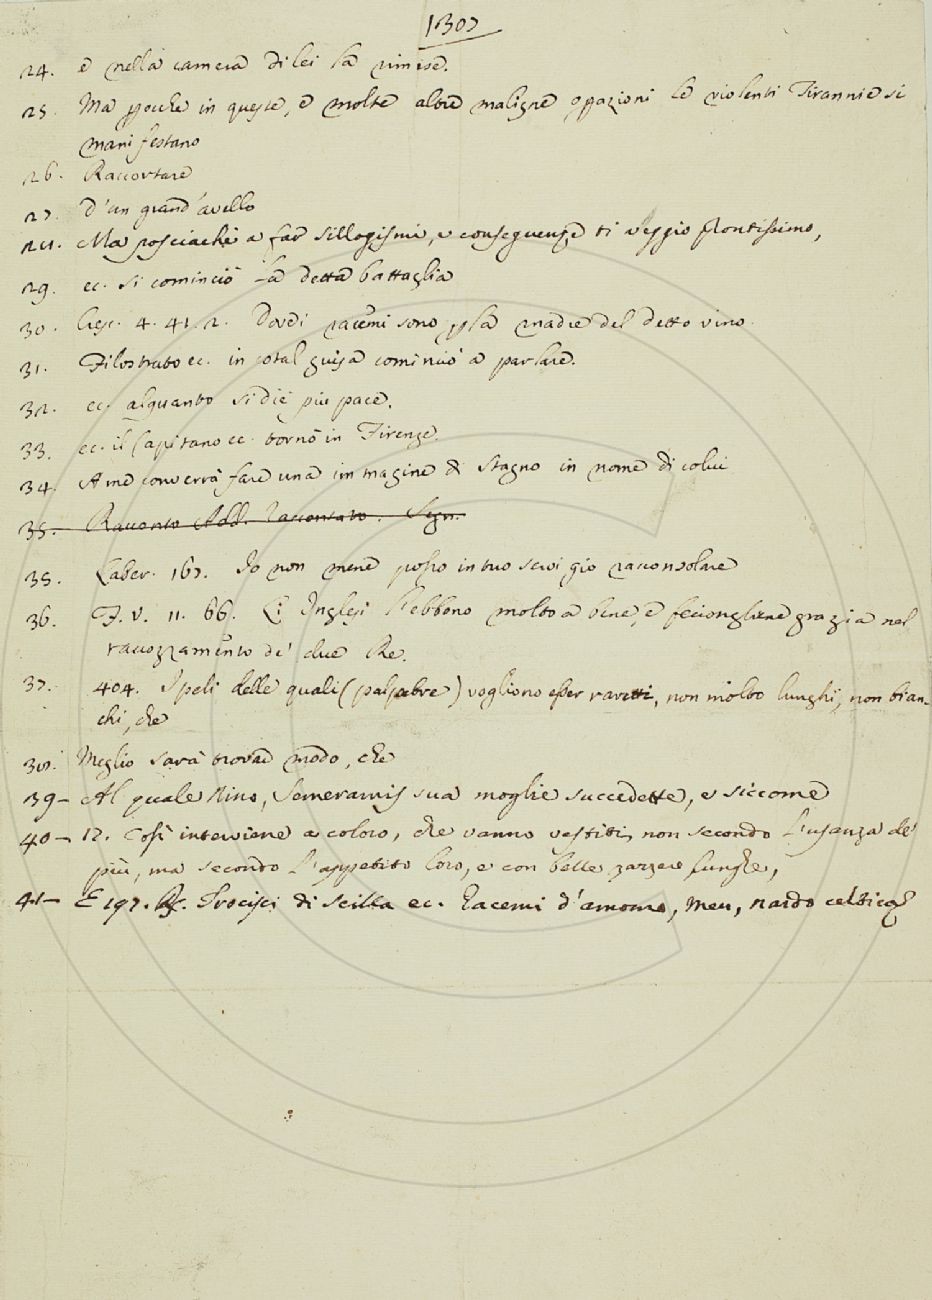 1307
24. e nella camera di lei la rimise.
25. Ma poiche in queste, e molte altre maligne opazioni le violenti Tirannie si
manifestano
26. Raccortare
27. d'un grand'avello
28. Ma posciachè a far sillogismi, e conseguenze ti veggio prontissimo,
29. ec. si cominciò la detta battaglia
30. Cresc. 4. 41. 2. Dove i racemi sono p la madre del detto vino.
31. Filostrato ec. in cotal guisa cominciò a parlare.
32. ec. alquanto si diè più pace.
33. ec. il Capitano ec. tornò in Firenze.
34. A me converrà fare una immagine di stagno in nome di colui
35. Racconto Add. Raccontato. Segn.
35. Laber. 167. Io non mene posso in tuo servigio racconsolare
36. F. V. 11. 66. Li Inglesi l'ebbono molto a bene, e feciongliene grazia nel
raccozzamento de' due Re.
37. 404. I peli delle quali (palpebre) vogliono esser raretti, non molto lunghi, non bian-
chi, che
38. Meglio sarà trovar modo, che
39- Al quale Nino, Semeramis sua moglie succedette, e siccome
40- 12. Così interviene a coloro, che vanno vestiti, non secondo l'usanza de'
più, ma secondo l'appetito loro, e con belle zazzere lunghe,
41- E 197. R. Trocisci di scilla ec. Racemi d'amomo, meu, nardo celtico